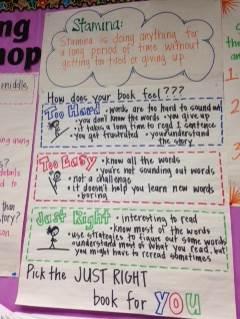 Stamina:
Stamina is doing anything for
a long period of time without
getting too tired or giving up.
How does your book feel???
Too Hard • words are too hard to sound out
• you don't know the words • you give up
• it takes a long time to read 1 sentence
• you get frustrated • you
understand
the story
Too Easy • know all the words
• you're not sounding out words
• not a challenge
• it doesn't help you learn new words
• boring
Just Right • interesting to read
• know most of the words
• use strategies to figure out some words
• understand most of what you read, but
you might have to reread sometimes
Pick the JUST RIGHT
book for YOU
ng
hop
middle,